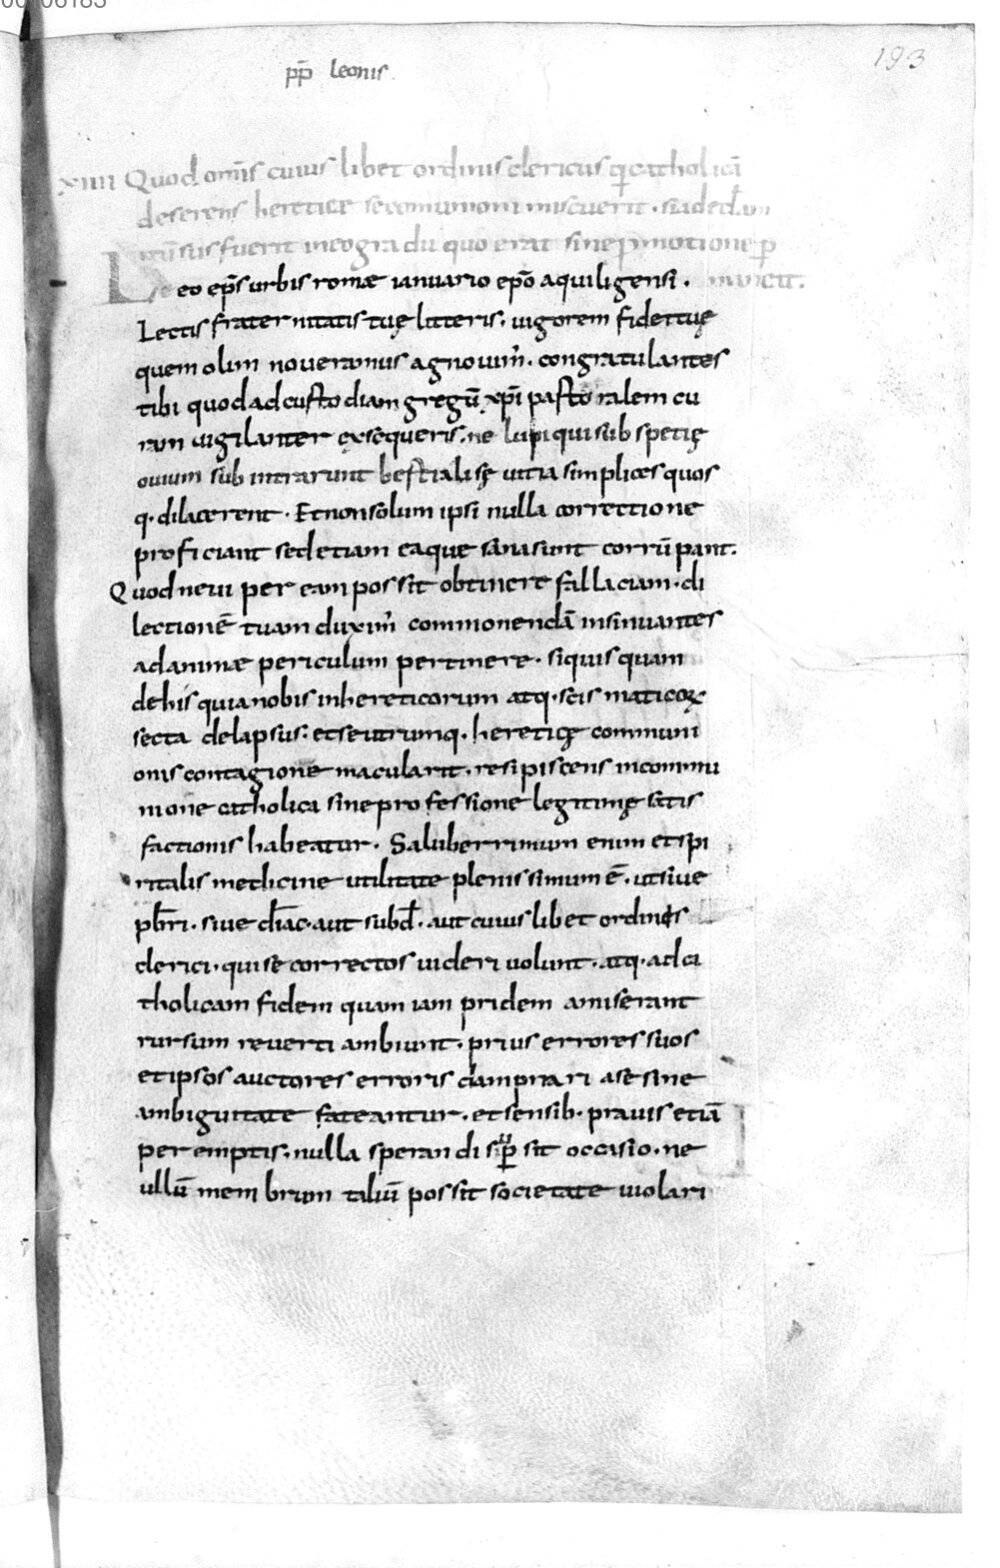 193
pp̄ leonis
xiiii Quod om̄is cuius libet ordinis clericus qui catholicā
deserens hereticę se comunioni miscuerit · si ad ed
sus fuerit in eo gradu quo erat sine p̱motione p̱
maneat.
Leo ep̄s urbis romæ ianuario ep̄o aquiligensi ·
Lectis fraternitatis tuę litteris · uigorem fidei tuę
quem olim noueramus agnouim̄ · congratulantes
tibi quod ad custodiam gregū xp̄i pastoralem cu
ram uigilanter exsequeris · ne lupi qui sub spetię
ouium sub intrarunt bestiali sę uitia simplices quos
q · dilacerent · Et non solum ipsi nulla correctione
proficiant sed etiam ea que sana sunt corrū pant.
Quod ne ui per eam possit obtinere fallaciam · di
lectionē tuam duxim̄ commonendā insinuantes
ad animæ periculum pertinere · siquis quam
de his qui a nobis in hereticorum atq · scismaticoꝝ
secta delapsus : et se utrumq · hereticę communi
onis contagione macularit · resipiscens in commu
nione catholica sine professione legitimę satis
factionis habeatur · Saluberrimum enim et spi
ritalis medicine utilitate plenissimum ē · ut siue
pb̄ri · siue diac̄ · aut subd̄ · aut cuius libet ordinis
clerici · qui se correctos uideri uolunt · atq · ad ca
tholicam fidem quam iam pridem amiserant
rursum reuerti ambiunt · prius errores suos
et ipsos auctores erroris damprari a se sine
ambiguitate fateantur · et sensib · prauis etiā
peremptis · nulla sperandi sup̱ sit occasio · ne
ullū membrum taliū possit societate uiolari